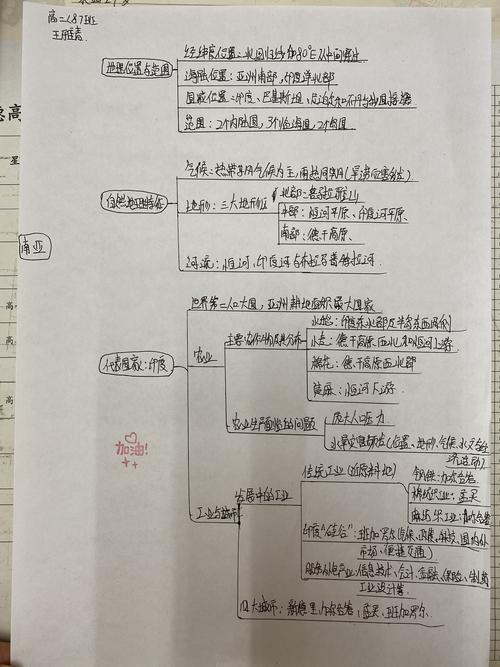 高二187班
地理位置与范围
经纬度位置：北回归线和80°E从中间穿过
海陆位置：亚洲南部，印度洋北部
国家位置：印度、巴基斯坦、尼泊尔和不丹与中国接壤
范围：2个内陆国，3个临海国，2个岛国
南亚
自然地理特征
气候：热带季风气候为主，雨热同期(旱涝灾害频发)
地形：三大地形区
北部：喜马拉雅山
中部：恒河平原、印度河平原、
南部：德干高原、
河流：恒河、印度河、布拉马普特拉河、
代表国家：印度
世界第二人口大国，亚洲耕地面积最大国家
农业
主要农作物及其分布
水稻：印度东北部及半岛东西两侧
小麦：德干高原西北和恒河上游
棉花：德干高原西北部
黄麻：恒河下游
农业生产面临的问题
庞大人口压力
水旱灾害频发(位置、地形、气候、水文
工业与城市
发展中的工业
传统工业(近原料地)
钢铁：加尔各答
棉纺织业：孟买
麻纺织工业：加尔各答
印度"硅谷"：班加罗尔(气候、政策、科技、国内外
市场、便捷交通)
服务外包产业：信息技术、会计、金融、保险、制药
工业设计等
四大城市：新德里、加尔各答、孟买、班加罗尔、
加油!